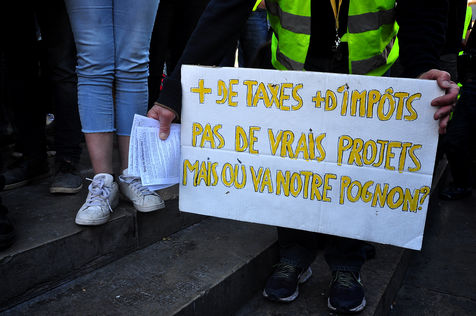 + DE TAXES + D'IMPÔTS
PAS DE VRAIS PROJETS
MAIS OÙ VA NOTRE POGNON?